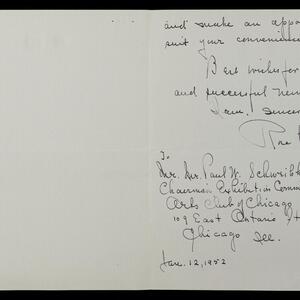 and make an appo
suit your convenienc
Best wishes for
and successful new
I am. Sincere
Rose
To
Mr. Paul W. Schweikh
Chairman Exhibition Comm
Arts Club of Chicago
109 East Ontario St
Chicago Ill.
Jan. 12, 1952